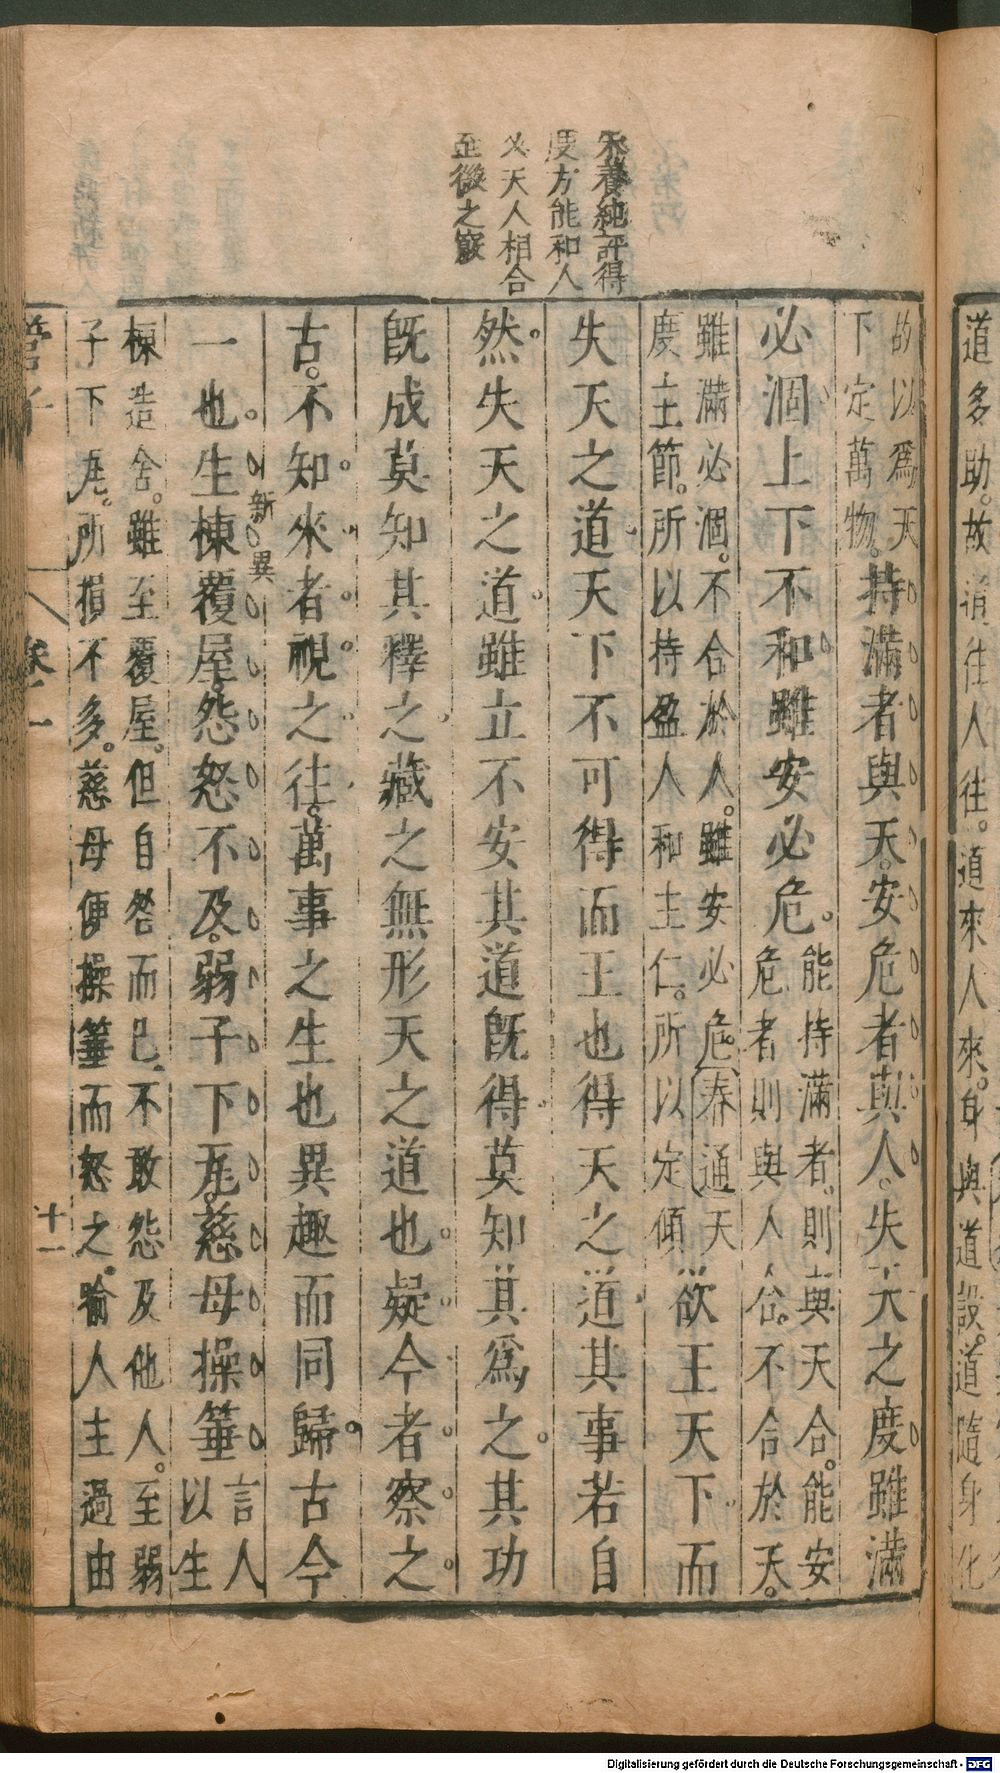 道多助。故道往人往。道來人來。身與道設。道隨身化
朱養純評得
度方能和人
必天人相合
至微之竅
故以爲天
下定萬物。
持滿者與天。安危者與人。失天之度雖滿
必涸上下不和。雖安必危。
能持滿者。則與天合。能安
危者則與人合。不合於天。
雖滿必涸。不合於人。雖安必危。春通天
度主節。所以持盈人和主仁。所以定傾
欲王天下而
失天之道天下不可得而王也得天之道其事若自
然。失天之道。雖立不安其道旣得莫知其爲之。其功
旣成莫知其釋之藏之無形天之道也。疑今者。察之
古。不知來者。視之往。萬事之生也異趣而同歸。古今
一也。生棟覆屋。怨怒不及。弱子下瓦。慈母操箠
新異
言人
以生
棟造舍。雖至覆屋。但自咎而已。不敢怨及他人。至弱
子下瓦。所損不多。慈母便操箠而怒之。喻人主過由
管子
卷一
十一
Digitalisierung gefördert durch die Deutsche Forschungsgemeinschaft - DFG